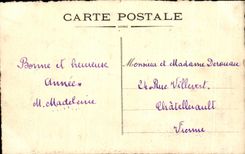 CARTE POSTALE
Bonne et heureuse
Année
M. Madeleine
Monsieur et Madame Derouau
Rue Villevert
Châtellerault
Vienne